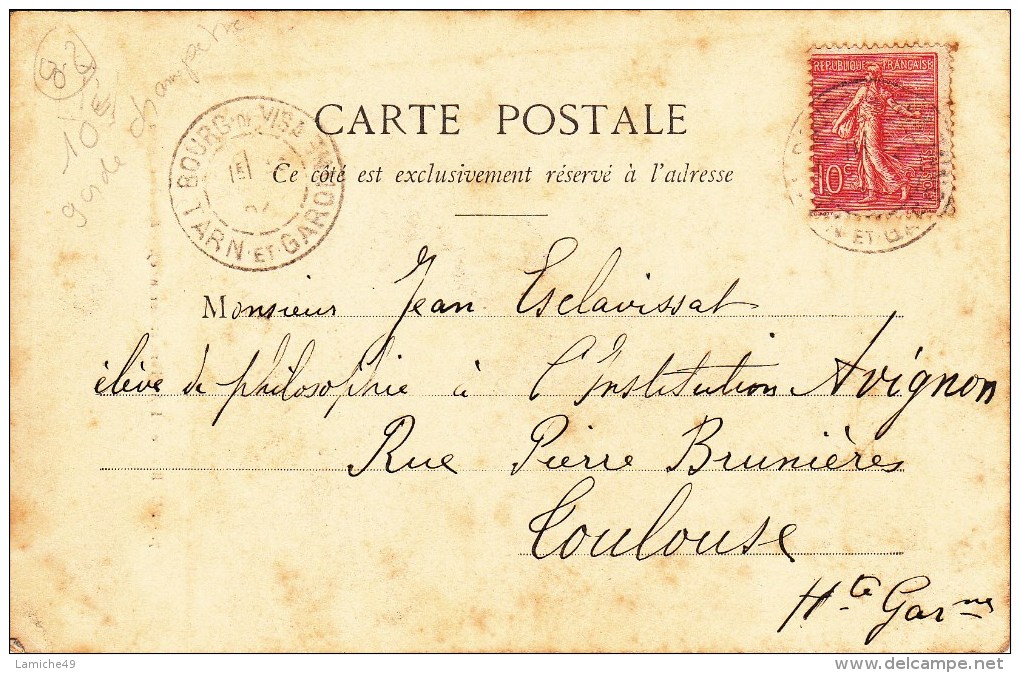 82
10
garde champêtre
CARTE POSTALE
Ce côté est exclusivement réservé à l'adresse
BOURG-DE-VISA
TARN-ET-GARONNE
REPUBLIQUE FRANÇAISE
10c
POSTES
ET GARONNE
Monsieur Jean Esclavissat
élève de philosophie à l'Institution Avignon
Rue Pierre Brunières
Toulouse
Hte Garne
Lamiche49
delcampe.net